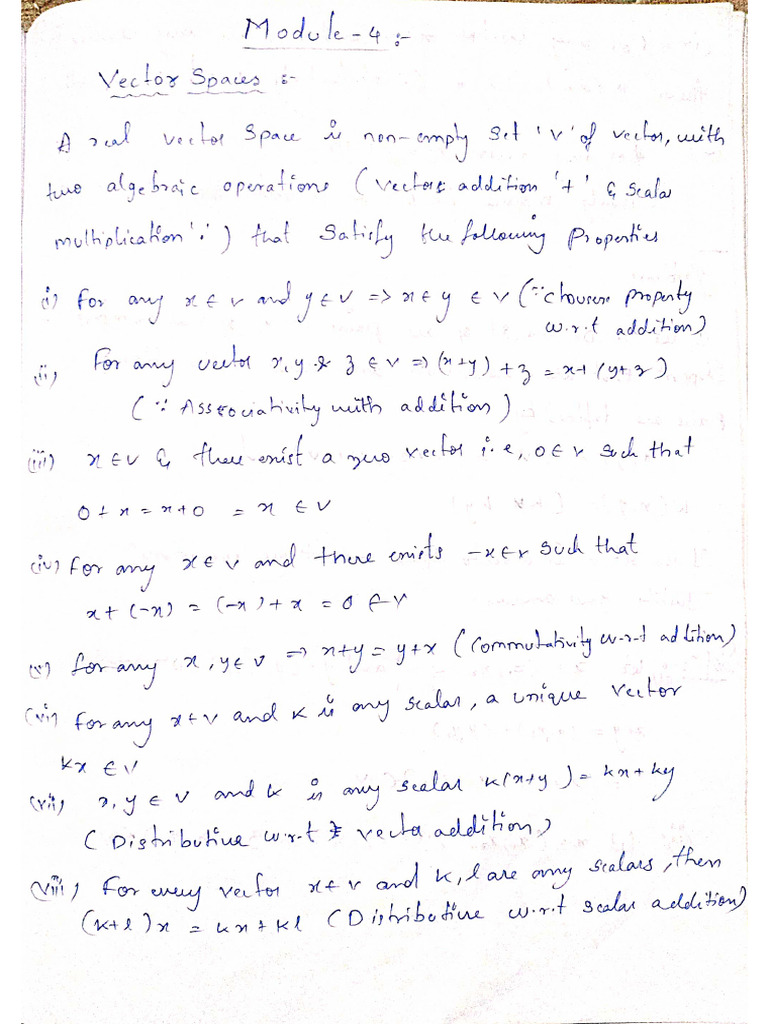 Module-4 :-
Vector Spaces :-
A real vector space is non-empty set 'V' of vector, with
two algebraic operations (vector addition '+' & scalar
multiplication '.') that satisfy the following properties
(i) for any x ∈ v and y ∈ v => x ∈ y ∈ V (∵ closure property
w.r.t addition)
(ii) For any vector x, y & z ∈ v => (x+y) + z = x+(y+z)
(∵ Associativity with addition)
(iii) x ∈ v & there exist a zero vector i.e, 0 ∈ v such that
0 + x = x + 0 = x ∈ v
(iv) For any x ∈ v and there exists -x ∈ v such that
x + (-x) = (-x) + x = 0 ∈ v
(v) for any x, y ∈ v => x+y = y+x (Commutativity w.r.t addition)
(vi) For any x ∈ v and k is any scalar, a unique vector
kx ∈ v
(vii) x, y ∈ v and k is any scalar k(x+y) = kx + ky
(Distributive w.r.t vector addition)
(viii) For every vector x ∈ v and k, l are any scalars, then
(k+l)x = kx + kl (Distributive w.r.t scalar addition)